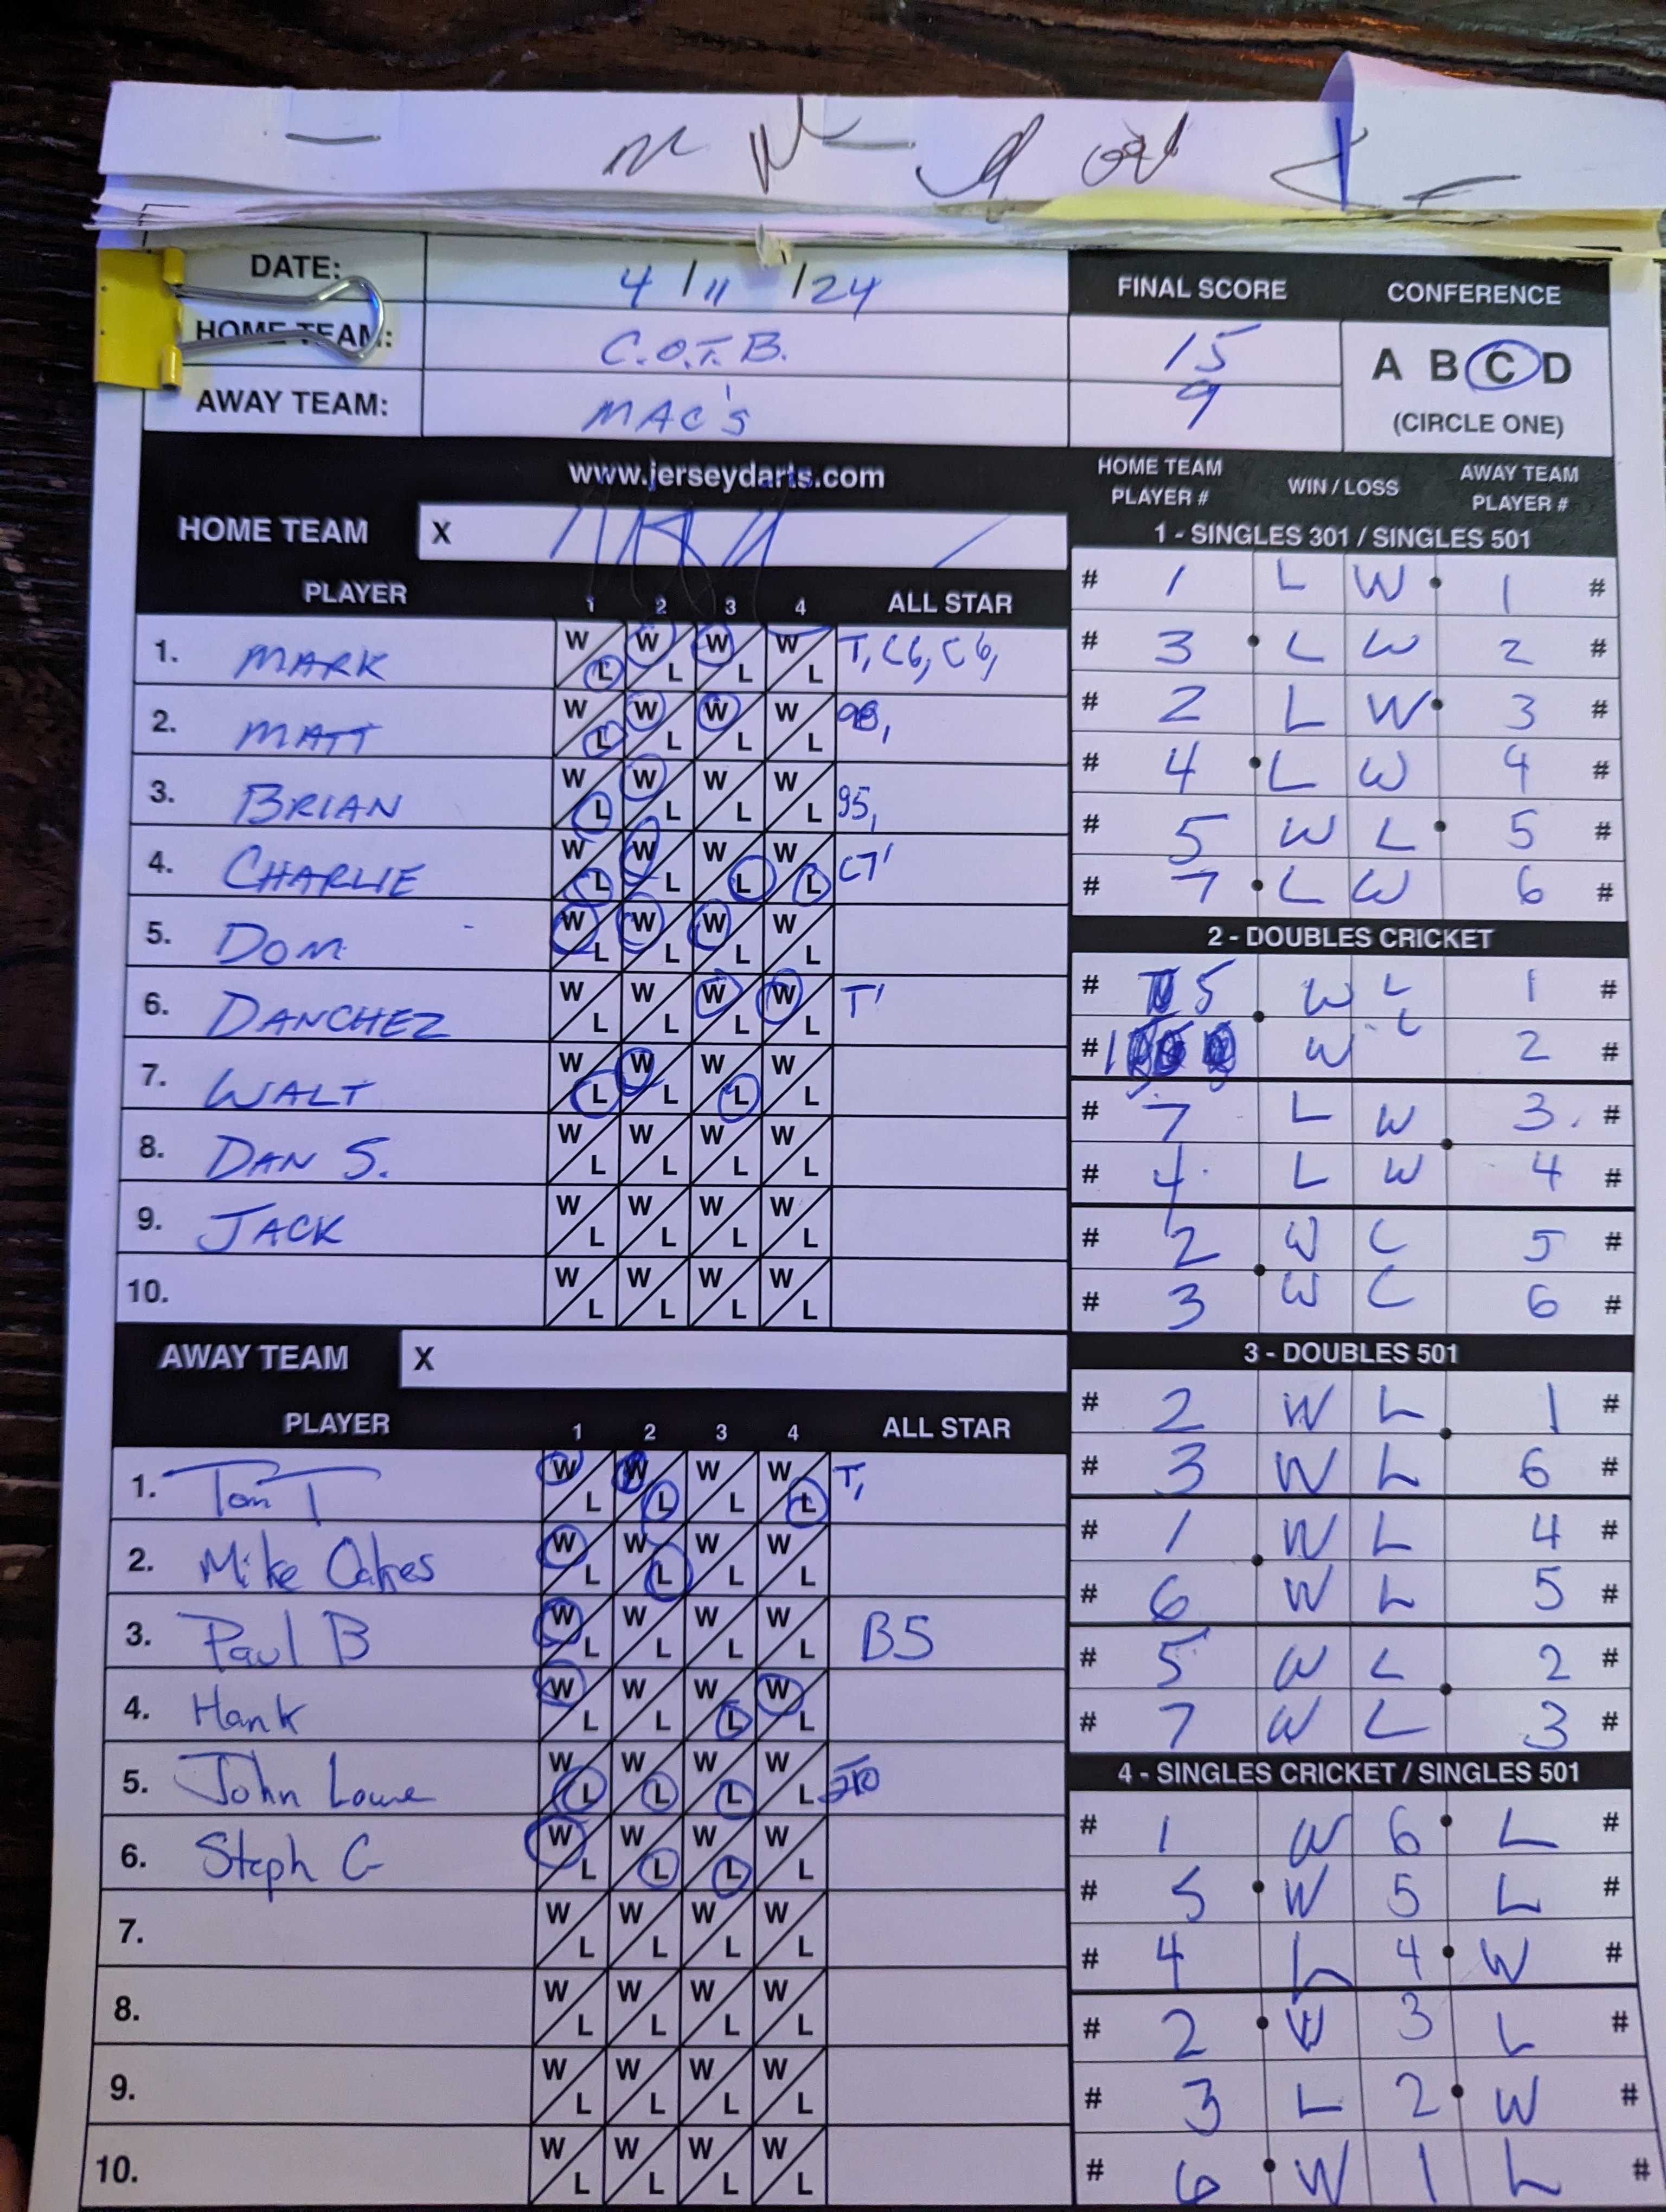 DATE: 4/11/24 FINAL SCORE CONFERENCE
HOME TEAM: C.O.T.B. 15 A B C D
AWAY TEAM: MAC'S 9 (CIRCLE ONE)
www.jerseydarts.com HOME TEAM PLAYER # WIN / LOSS AWAY TEAM PLAYER #
HOME TEAM X
PLAYER 1 2 3 4 ALL STAR
1. MARK W L W L W L W L T, C6, C6,
2. MATT W L W L W L W L
3. BRIAN W L W L W L W L 95,
4. CHARLIE W L W L W L W L C7'
5. DOM W L W L W L W L
6. DANCHEZ W L W L W L W L T'
7. WALT W L W L W L W L
8. DAN S. W L W L W L W L
9. JACK W L W L W L W L
10. W L W L W L W L
AWAY TEAM X
PLAYER 1 2 3 4 ALL STAR
1. Tom T W L W L W L W L T,
2. Mike Oakes W L W L W L W L
3. Paul B W L W L W L W L B5
4. Hank W L W L W L W L
5. John Lowe W L W L W L W L
6. Steph G W L W L W L W L
7. W L W L W L W L
8. W L W L W L W L
9. W L W L W L W L
10. W L W L W L W L
1 - SINGLES 301 / SINGLES 501
# 1 L W 1 #
# 3 L W 2 #
# 2 L W 3 #
# 4 L W 4 #
# 5 W L 5 #
# 7 L W 6 #
2 - DOUBLES CRICKET
# 5 W L 1 #
# 1 W L 2 #
# 7 L W 3 #
# 4 L W 4 #
# 2 W L 5 #
# 3 W L 6 #
3 - DOUBLES 501
# 2 W L 1 #
# 3 W L 6 #
# 1 W L 4 #
# 6 W L 5 #
# 5 W L 2 #
# 7 W L 3 #
4 - SINGLES CRICKET / SINGLES 501
# 1 W 6 L #
# 5 W 5 L #
# 4 L 4 W #
# 2 W 3 L #
# 3 L 2 W #
# 6 W 1 L #